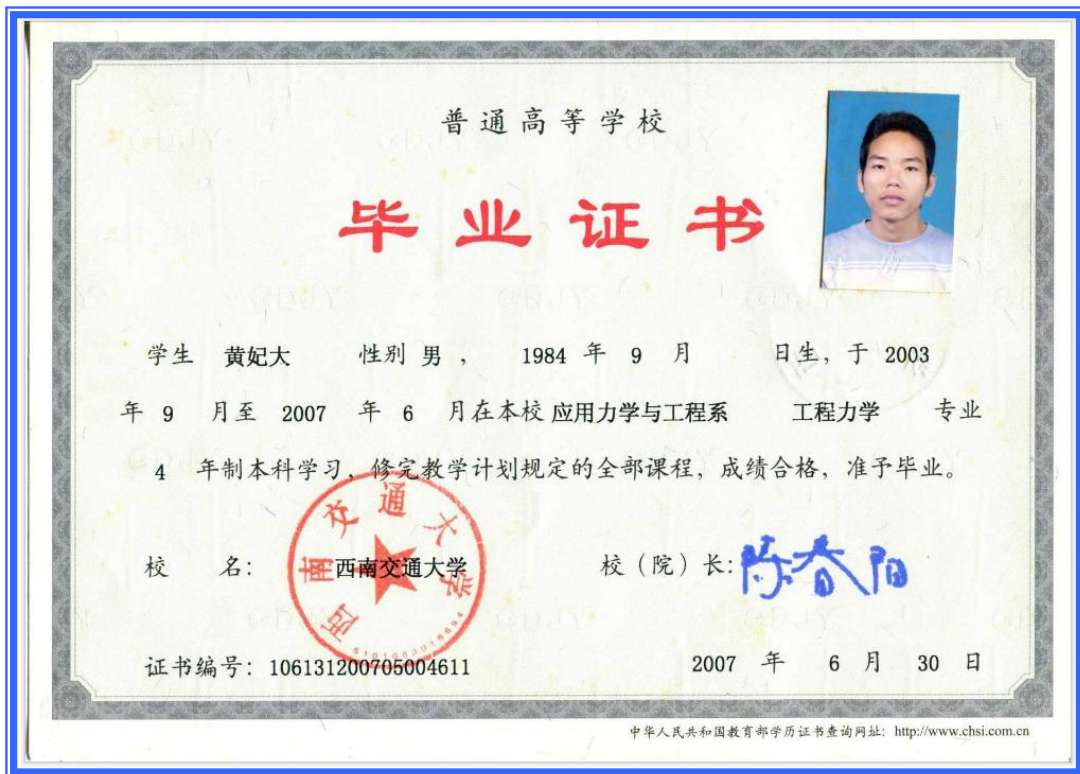 普通高等学校
毕业证书
学生 黄妃大 性别 男 , 1984 年 9 月 日生, 于 2003
年 9 月至 2007 年 6 月在本校 应用力学与工程系 工程力学 专业
4 年制本科学习, 修完教学计划规定的全部课程, 成绩合格, 准予毕业。
校 名: 西南交通大学
西南交通大学
校(院)长: 陈春阳
证书编号: 106131200705004611
2007 年 6 月 30 日
中华人民共和国教育部学历证书查询网址: http://www.chsi.com.cn